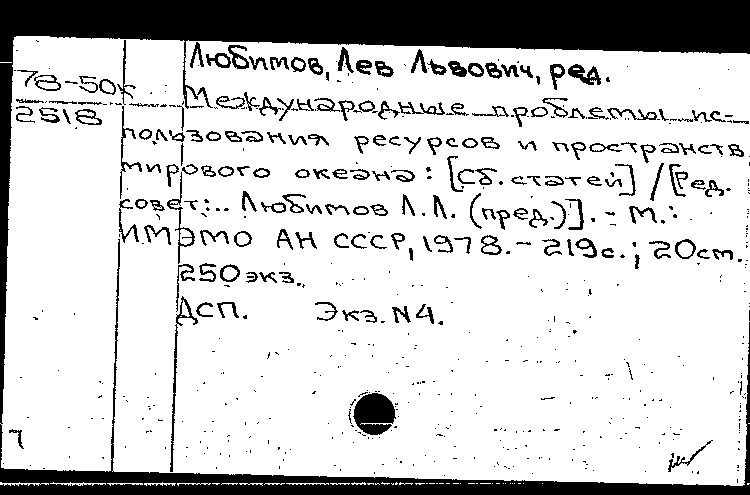 Любимов, Лев Львович, ред.
78-50к
2518
Международные проблемы ис-
пользования ресурсов и пространств
мирового океана: [Сб. статей] / [Ред.
совет:.. Любимов Л.Л. (пред.)]. - М.:
ИМЭМО АН СССР, 1978. - 219с.; 20см.
250 экз.
ДСП. Экз. N4.